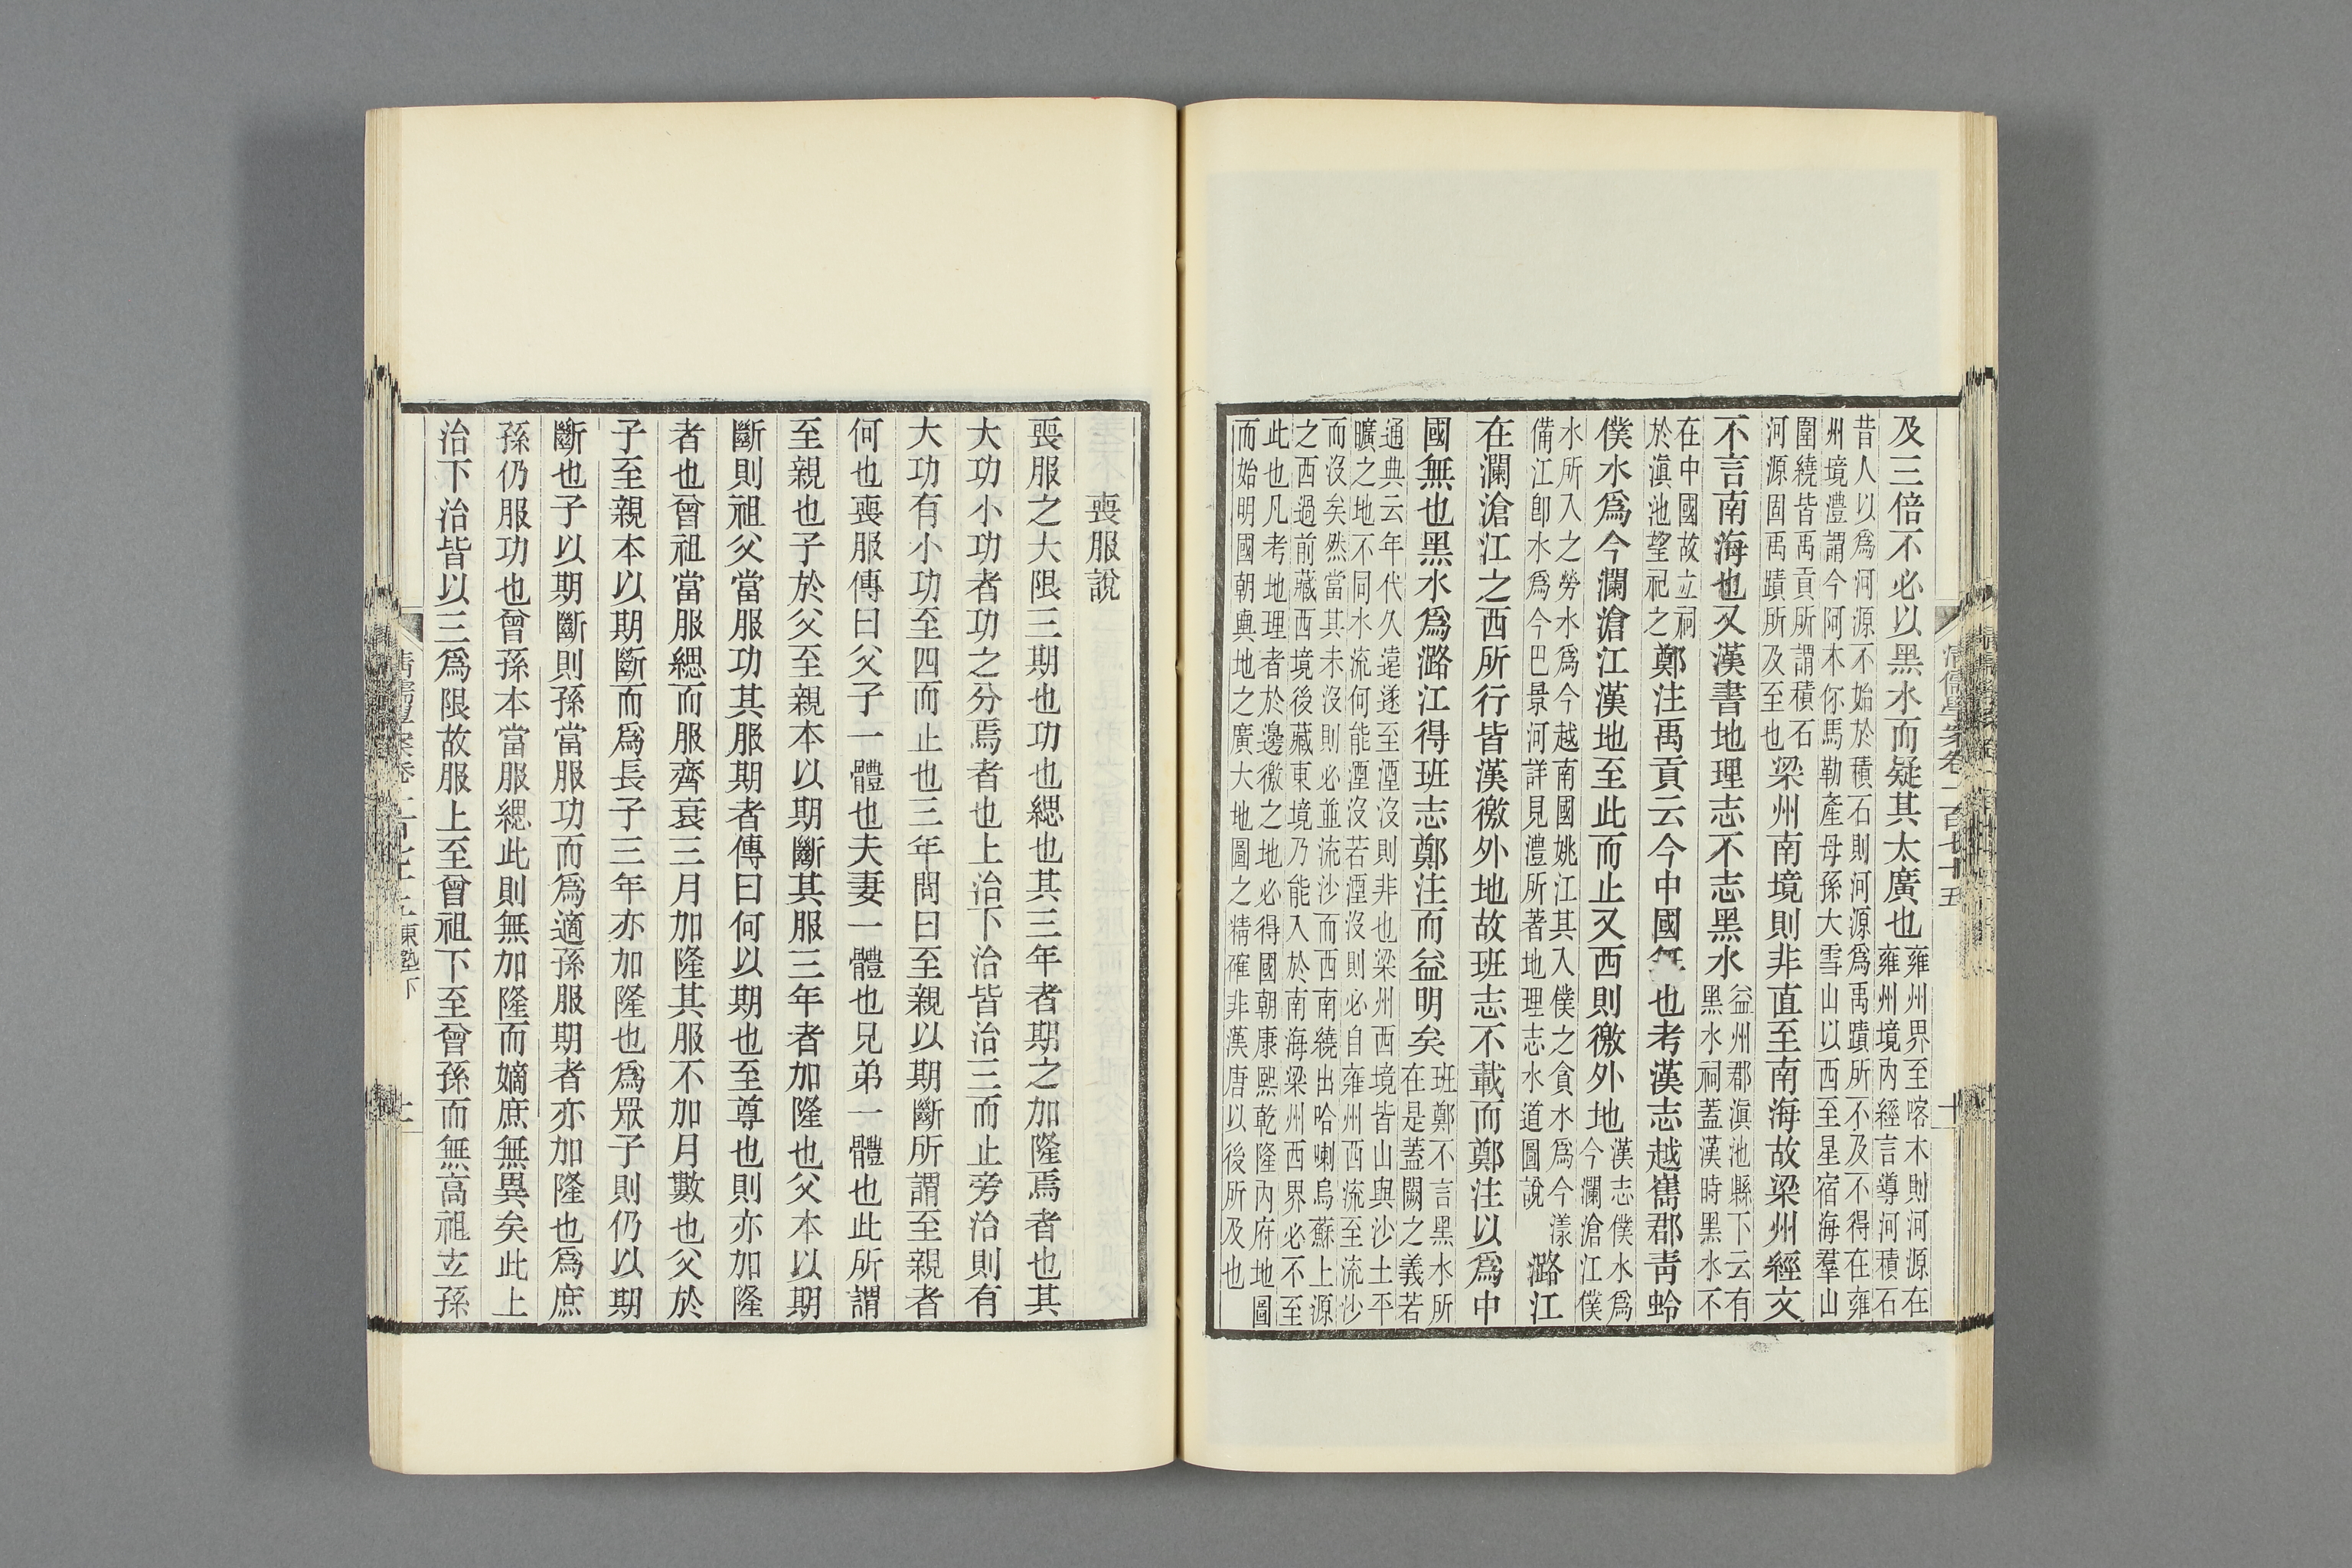 及三倍不必以黑水而疑其太廣也雍州界至喀木則河源在
雍州境內經言導河積石
昔人以爲河源不始於積石則河源爲禹蹟所不及不得在雍
州境澧謂今阿木你馬勒產母孫大雪山以西至星宿海羣山
圍繞皆禹貢所謂積石
河源固禹蹟所及至也梁州南境則非直至南海故梁州經文
不言南海也又漢書地理志不志黑水益州郡滇池縣下云有
黑水祠蓋漢時黑水不
在中國故立祠
於滇池望祀之鄭注禹貢云今中國無也考漢志越巂郡靑蛉
僕水爲今瀾滄江漢地至此而止又西則徼外地漢志僕水爲
今瀾滄江僕
水所入之勞水爲今越南國姚江其入僕之貪水爲今漾
備江卽水爲今巴景河詳見澧所著地理志水道圖說潞江
在瀾滄江之西所行皆漢徼外地故班志不載而鄭注以爲中
國無也黑水爲潞江得班志鄭注而益明矣班鄭不言黑水所
在是蓋闕之義若
通典云年代久遠遂至湮沒則非也梁州西境皆山與沙土平
曠之地不同水流何能湮沒若湮沒則必自雍州西流至流沙
而沒矣然當其未沒則必並流沙而西南繞出哈喇烏蘇上源
之西過前藏西境後藏東境乃能入於南海梁州西界必不至
此也凡考地理者於邊徼之地必得國朝康熙乾隆內府地圖
而始明國朝輿地之廣大地圖之精確非漢唐以後所及也
清儒學案卷一百七十五
十
喪服說
喪服之大限三期也功也緦也其三年者期之加隆焉者也其
大功小功者功之分焉者也上治下治皆治三而止旁治則有
大功有小功至四而止也三年問曰至親以期斷所謂至親者
何也喪服傳曰父子一體也夫妻一體也兄弟一體也此所謂
至親也子於父至親本以期斷其服三年者加隆也父本以期
斷則祖父當服功其服期者傳曰何以期也至尊也則亦加隆
者也曾祖當服緦而服齊衰三月加隆其服不加月數也父於
子至親本以期斷而爲長子三年亦加隆也爲眾子則仍以期
斷也子以期斷則孫當服功而爲適孫服期者亦加隆也爲庶
孫仍服功也曾孫本當服緦此則無加隆而嫡庶無異矣此上
治下治皆以三爲限故服上至曾祖下至曾孫而無高祖玄孫
清儒學案卷一百七十五東塾下